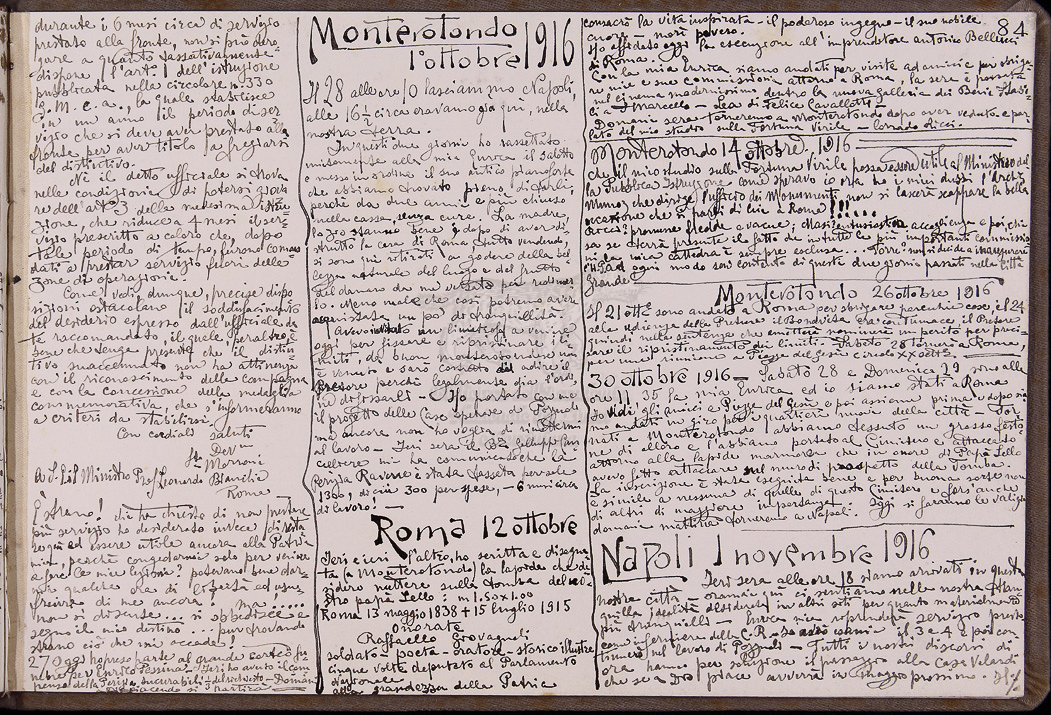 durante i 6 mesi circa di servizio
prestato alla fronte, non si può dero-
gare a quanto tassativamente
dispone l'art. 1 dell'istruzione
pubblicata nella circolare n. 330
g. m. c. a., la quale stabilisce
in un anno il periodo di ser-
vizio che si deve aver prestato alla
fronte per aver titolo a fregiarsi
del distintivo.
Nè il detto ufficiale si trova
nelle condizioni di potersi giova-
re dell'art. 3 della medesima istru-
zione, che riduce a 4 mesi il ser-
vizio prescritto a coloro che, dopo
tale periodo di tempo, furono coman
dati a prestar servizio fuori della
zona di operazioni.
Come vedi, dunque, precise dispo
sizioni ostacolano il soddisfacimento
del desiderio espresso dall'ufficiale da
te raccomandato, il quale peraltro è
bene che tenga presente che il distin-
tivo suaccennato non ha attinenza
con il riconoscimento delle campagne
e con la concessione della medaglia
commemorativa, che s'informeranno
a criteri da stabilirsi.
Con cordiali saluti
Dev
Morrone
A S. E. il Ministro Prof. Leonardo Bianchi
Roma
È strano!
più servizio ho desiderato invece di resta
re qui ad essere utile ancora alla Patria
mia, perchè congedarmi solo per venire
a fare le mie lezioni? potevano bene dar-
mi qualche ora di libertà ed usu-
fruire di me ancora. Ma ....
non si discute... si obbedisce
segno il mio destino ... pur trovando
strano ciò che mi accade!
27 Oggi ho preso parte al grande corteo fu
nebre per Enrico Pessina. Ieri ho avuto il com
penso della
Monterotondo
1 ottobre 1916
Il 28 alle ore 10 lasciammo Napoli,
alle 16½ circa eravamo già qui, nella
nostra terra.
In questi due giorni ho rassettato
unitamente alla mia Enrica il salotto
e messo in ordine il suo antico pianoforte
che abbiamo trovato pieno di tarli,
perchè da due anni e più chiuso
nella cassa, senza cure. La madre,
lo zio stanno bene e dopo di aver di-
strutto la casa di Roma, tutto vendendo,
si sono qui ritirati a godere della bel
lezza naturale del luogo e del frutto
del danaro da me
Meno male che così potremo avere
assicurata un po' di tranquillità.
Avevo invitato un limitrofo a venire
oggi per fissare e ripristinare i
limiti, da buon
è venuto e sarò costretto di adire il
Pretore perchè legalmente gia l'ordi
ni di fossarli – Ho portato con me
il progetto delle Case operaie di Pozzuoli
ma ancora non ho voglia di rimettermi
al lavoro – Ieri sera il D.
mi ha comunicato che la
è stata tassata per sole
1300, di cui 300 per spese, – 6 mesi circa
di lavoro! –
Roma 12 ottobre
Ieri e ieri l'altro, ho scritta e disegna-
ta (a Monterotondo) la lapide che di
dovrò mettere sulla tomba del no-
stro papà Lello: m 1.50 x 1.00
Roma 13 maggio 1838 + 15 luglio 1915
Onorate
Raffaello Giovagnoli
soldato – poeta – oratore – storico illustre
cinque volte deputato al Parlamento
Nazionale
alla grandezza della Patria
84
consacrò la vita inspirata – il poderoso ingegno – il suo nobile
cuore – morì povero.
Ho affidato oggi la esecuzione all'imprenditore Antonio Bellucci
a Roma.
Con la mia Enrica siamo andati per visite ad amici e per sbriga
re mie e sue commissioni attorno a Roma, la sera è passata
nel cinema modernissimo dentro la nuova galleria di Beni Stabi-
li a S. Marcello – Lea di Felice Cavallotti –
Domani sera torneremo a Monterotondo dopo aver veduto e par
lato del mio studio sulla Fortuna Virile – Corrado Ricci.
Monterotondo 14 ottobre 1916
che il mio studio sulla Fortuna Virile possa essere utile al Ministero del
la Pubblica Istruzione come speravo io ora ho i miei dubbi! l'arch.
Munoz che dirige l'ufficio dei Monumenti non si lascerà scappare la bella
occasione che si parli di lui a Roma!!!....
Ricci? promesse fredde e vacue; Magni entusiastica accoglienza e poi, chi
sa se terrà presente il fatto che in tutte le più importanti commissio
ni la mia cattedra è sempre esclusa. –
ad ogni modo son contento di queste due giornate passate nella città
grande.
Monterotondo 26 ottobre 1916
Il 21 ott. sono andato a Roma per sbrigare parecchie cose, il 24
alla udienza della Pretura il era contumace, il Pretore
quindi nella sentenza che emetterà nominerà un perito per preci-
sare il ripristinamento dei limiti. Sabato 28 tornerò a Roma,
a Piazza del Gesù circolo XX sett.
30 ottobre 1916 – Sabato 28 e Domenica 29 sino alle
ore 11.35 la mia Enrica ed io siamo stati a Roma
Ho vidi gli amici a P. del Gesù e poi assieme prima e dopo sia
mo andati in giro per i quartieri nuovi della città – Tor-
nati a Monterotondo abbiamo tessuto un grosso festo
ne di alloro e l'abbiamo portato al Cimitero e attaccato
attorno alla lapide marmorea che in onore di Papà Lello
avevo fatto attaccare sul muro di prospetto della Tomba.
La iscrizione è stata eseguita bene e per buona sorte non
è simile a nessuna di quelle di questo Cimitero e fors'anche
di altri di maggiore importanza. Oggi si faranno le valigie
domani mattina torneremo a Napoli.
Napoli 1 novembre 1916
Ieri sera alle ore 18 siamo arrivati in questa
nostra città – oramai qui ci sentiamo nella nostra
idealità desiderata in altri siti per quanto materialmente
più tranquilli – Enrica mia riprenderà servizio presto
come infermiera della C.R. – io avrò esami il 3 e 4 e poi con
tinuerò sul lavoro di Pozzuoli – Tutti i nostri discorsi di
ora hanno per soluzione il passaggio alla Casa Velardi
che se a Dio piace avverrà in Maggio prossimo.